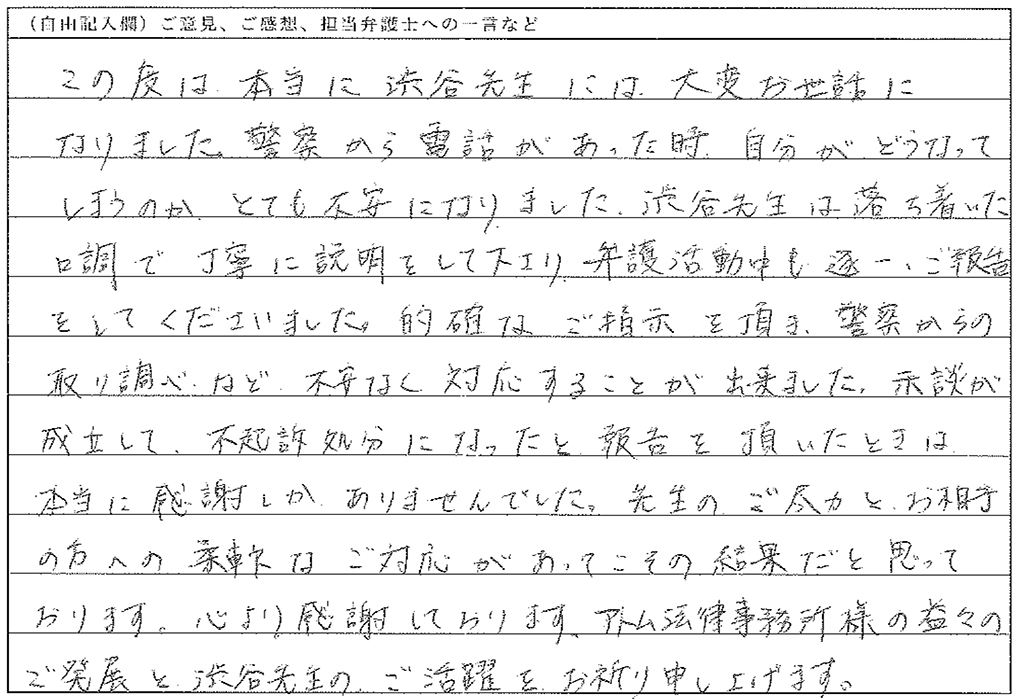 （自由記入欄）ご意見、ご感想、担当弁護士への一言など
この度は 本当に 渋谷先生 には 大変お世話に
なりました。警察から電話があった時、自分がどうなって
しまうのか とても不安になりました。渋谷先生は落ち着いた
口調で丁寧に説明をして下エリ 弁護活動中も逐一、ご報告
をしてくださいました。的確なご指示を頂き、警察からの
取り調べなど、不安なく対応することが出来ました。示談が
成立して、不起訴処分になったと報告を頂いたときは
本当に感謝しかありませんでした。先生のご尽力とお相手
の方への柔軟なご対応があってこその結果だと思って
おります。心より感謝しております。アトム法律事務所様の益々の
ご発展と渋谷先生のご活躍をお祈り申し上げます。